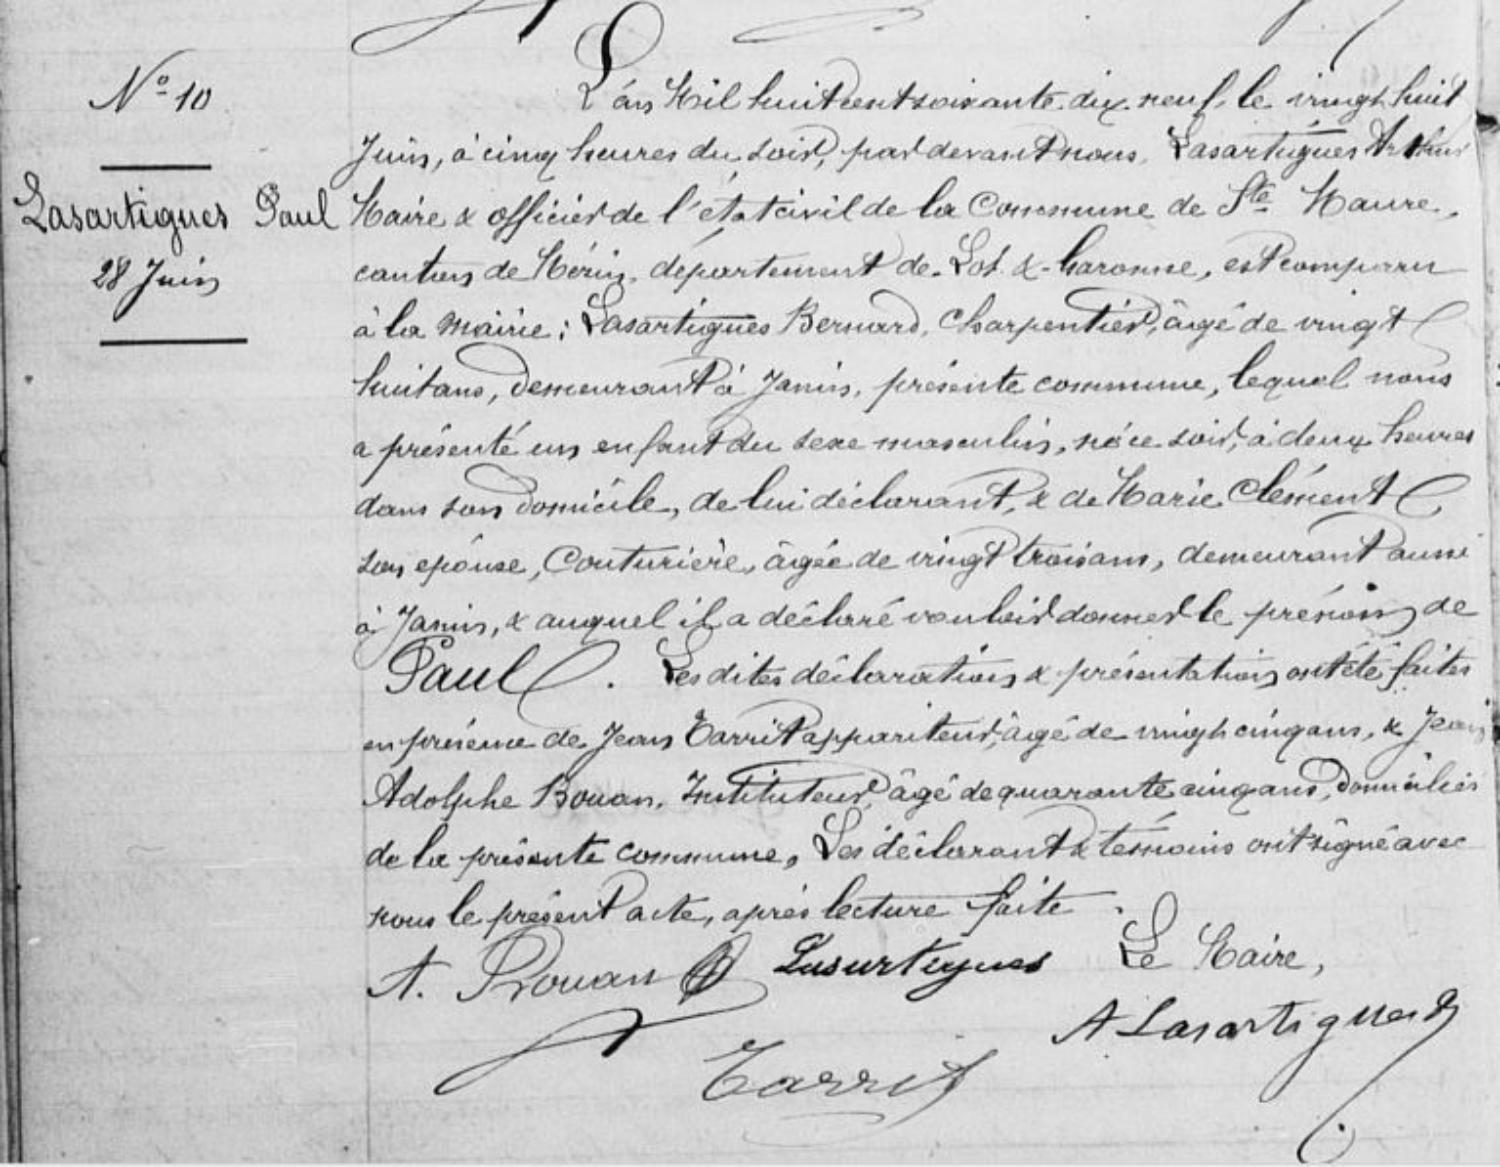 N° 10
Lasartigues Paul
28 Juin
L'an Mil huit cent soixante dix neuf, le vingt huit
Juin, à cinq heures du soir, par devant nous, Lasartigues Arthur
Maire & officier de l'état civil de la Commune de Ste Maure,
canton de Mézin, département de Lot & Garonne, est comparu
à la Mairie : Lasartigues Bernard, Charpentier, âgé de vingt
huit ans, demeurant à Janin, présente commune, lequel nous
a présenté un enfant du sexe masculin, né ce soir, à deux heures
dans son domicile, de lui déclarant, & de Marie Clément
son épouse, Couturière, âgée de vingt trois ans, demeurant aussi
à Janin, & auquel il a déclaré vouloir donner le prénom de
Paul. Les dites déclaration & présentation ont été faites
en présence de Jean Tarrit appariteur, âgé de vingt cinq ans, & Jean
Adolphe Bouan, Instituteur, âgé de quarante cinq ans, domiciliés
de la présente commune, Les déclarant & témoins ont signé avec
nous le présent acte, après lecture faite.
A. Rouan Lasartigues Le Maire,
A Lasartigues
Tarrit